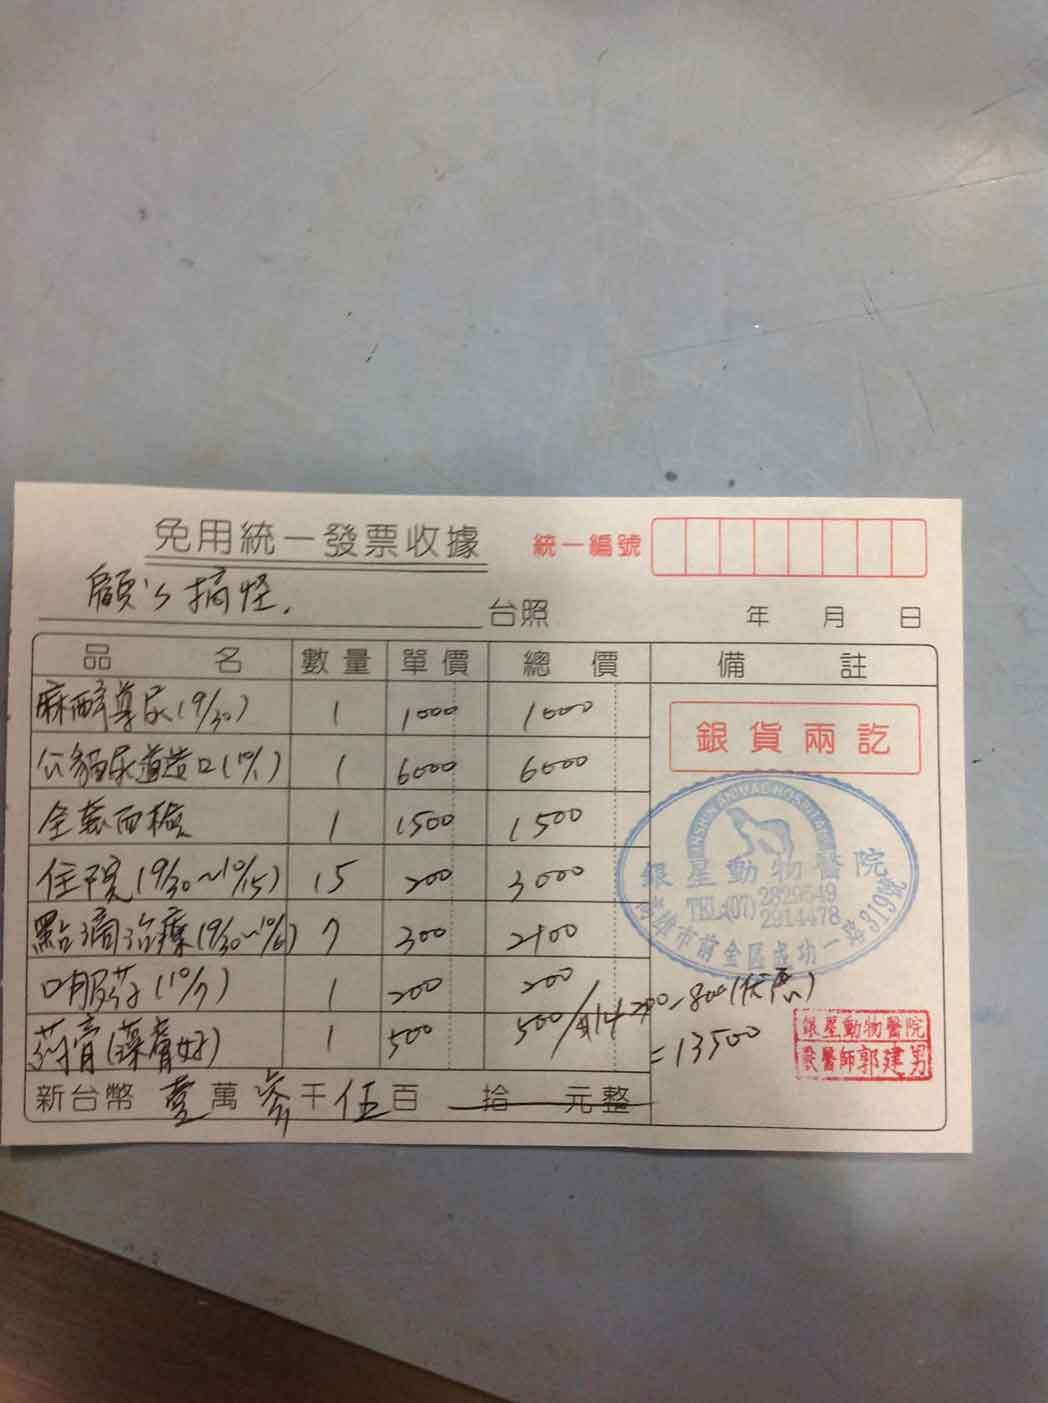 免用統一發票收據
統一編號
搞怪.
台照 年 月 日
品名 數量 單價 總價 備註
麻醉導尿(9/30) 1 1000 1000
公貓尿道造口(10/1) 1 6000 6000
全套血檢 1 1500 1500
住院(9/30~10/15) 15 200 3000
點滴治療(9/30~10/6) 7 300 2100
口服药(10/7) 1 200 200
药膏 1 500 500
-800(优惠)
=13500
新台幣 壹萬參千伍百 拾 元整
銀貨兩訖
YINSIN ANIMAL HOSPITAL
銀星動物醫院
TEL:(07) 2829549
2914478
高雄市前金區成功一路319號
銀星動物醫院
獸醫師郭建男